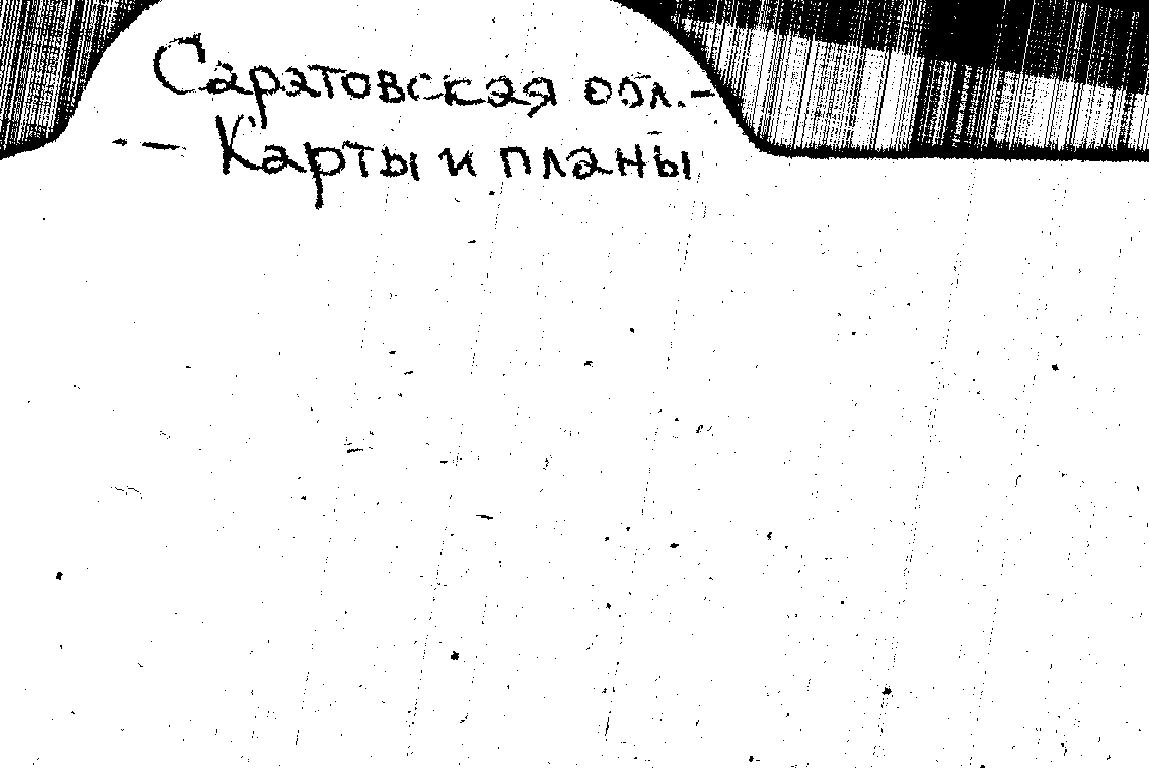 Саратовская обл. -
- - Карты и планы